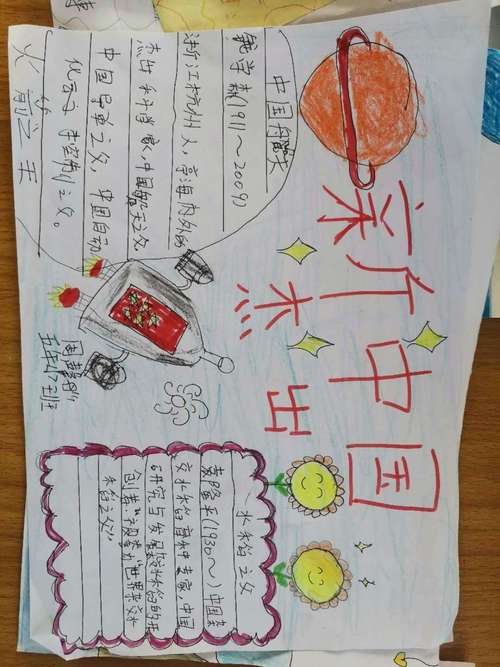 新中国
杰出
中国航天
钱学森(1911～2009)
浙江杭州人，享海内外的
杰出科学家，中国航天之父
中国导弹之父，中国自动
制之父。
火箭之王
五年
班
水稻之父
袁隆平(1930～)中国杂
交水稻育种专家，中国
研究与发展杂交水稻的开
创者，被誉为"世界杂交水
稻之父"